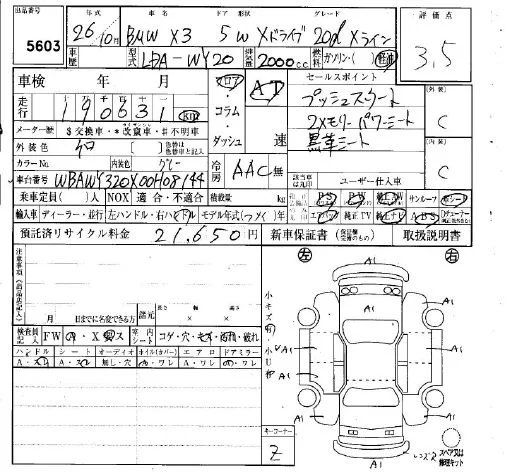 出品番号 5603
年式 26年10月 車名 BMW X3 ドア 形状 5W グレード Xドライブ 20d Xライン
車歴 型式 LDA-WY20 排気量 2000cc 燃料 ガソリン・( ) 軽油
評価点 3.5
車検 年 月
走行 190631 km
メーター歴 $交換車・*改竄車・#不明車
外装色 シロ 色替
カラーNo. 内装色 グレー
車台番号 WBAWY320X00H08144
フロア・コラム・ダッシュ
AT 速
冷房 AAC 無
セールスポイント
プッシュスタート
2メモリーパワーシート
黒革シート
(外装) C
(内装) C
ユーザー仕入車
該当車は丸印
乗車定員( )人 NOX 適合・不適合 積載量 kg PS PW サンルーフ 革シート
輸入車 ディーラー・並行 左ハンドル・右ハンドル モデル年式( )年 エアバック 純正TV 純正ナビ ABS
預託済リサイクル料金 21,650 円 新車保証書 取扱説明書
注意事項
月 日までに名変できる方
諸元 長さ 幅 高さ
検査員記入 FW A・X 室内シート コゲ・穴・キズ・汚れ・破れ
ハンドル シート オーディオ ホイル(カバー) エアロ ドアミラー
A・スレ A・スレ 無し・穴 ・ワレ ・ワレ ・ワレ
左 右
小キズ有・小U有
A1
A1
A1 A1
A1 A1
A1 A1
A1
キーコーナー Z
スペアタイヤ又は修理キット